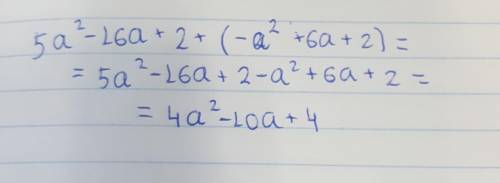 5a²-16a+2+(-a²+6a+2)=
=5a²-16a+2-a²+6a+2=
=4a²-10a+4